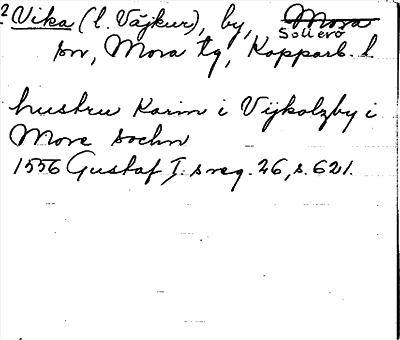 2 Vika (l. Väjkur), by, Mora
Sollerö
sn, Mora tg, Kopparb. l.
hustru Karin i Vijkolzby i
More sochn
1556 Gustaf I:s reg. 26, s. 621.